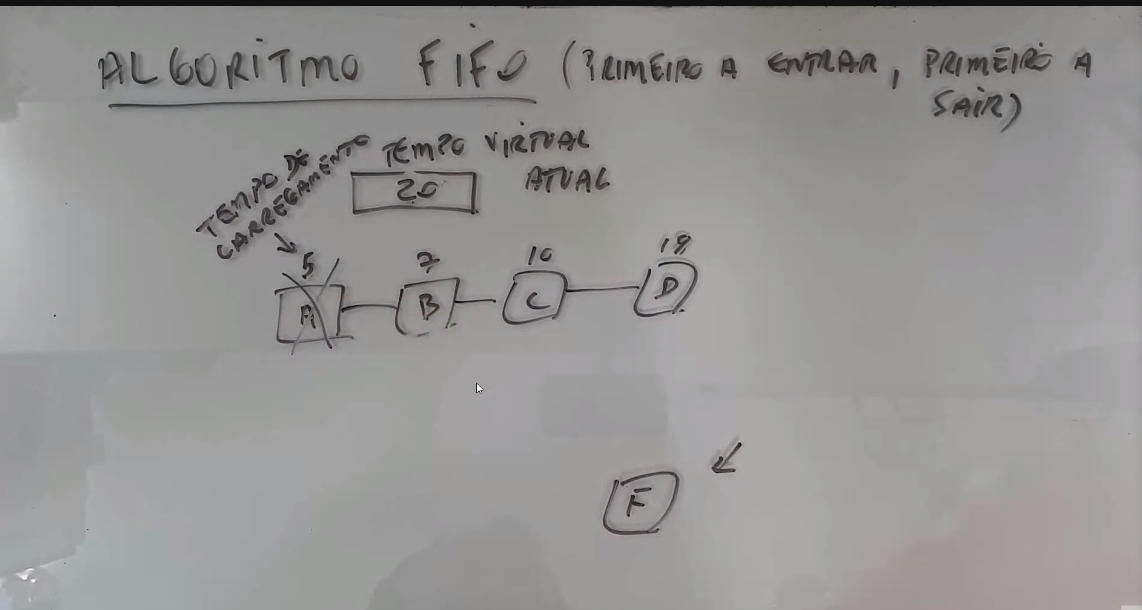 ALGORITMO FIFO (PRIMEIRO A ENTRAR, PRIMEIRO A
SAIR)
TEMPO DE
CARREGAMENTO
TEMPO VIRTUAL
ATUAL
20
5 7 10 18
A B C D
F